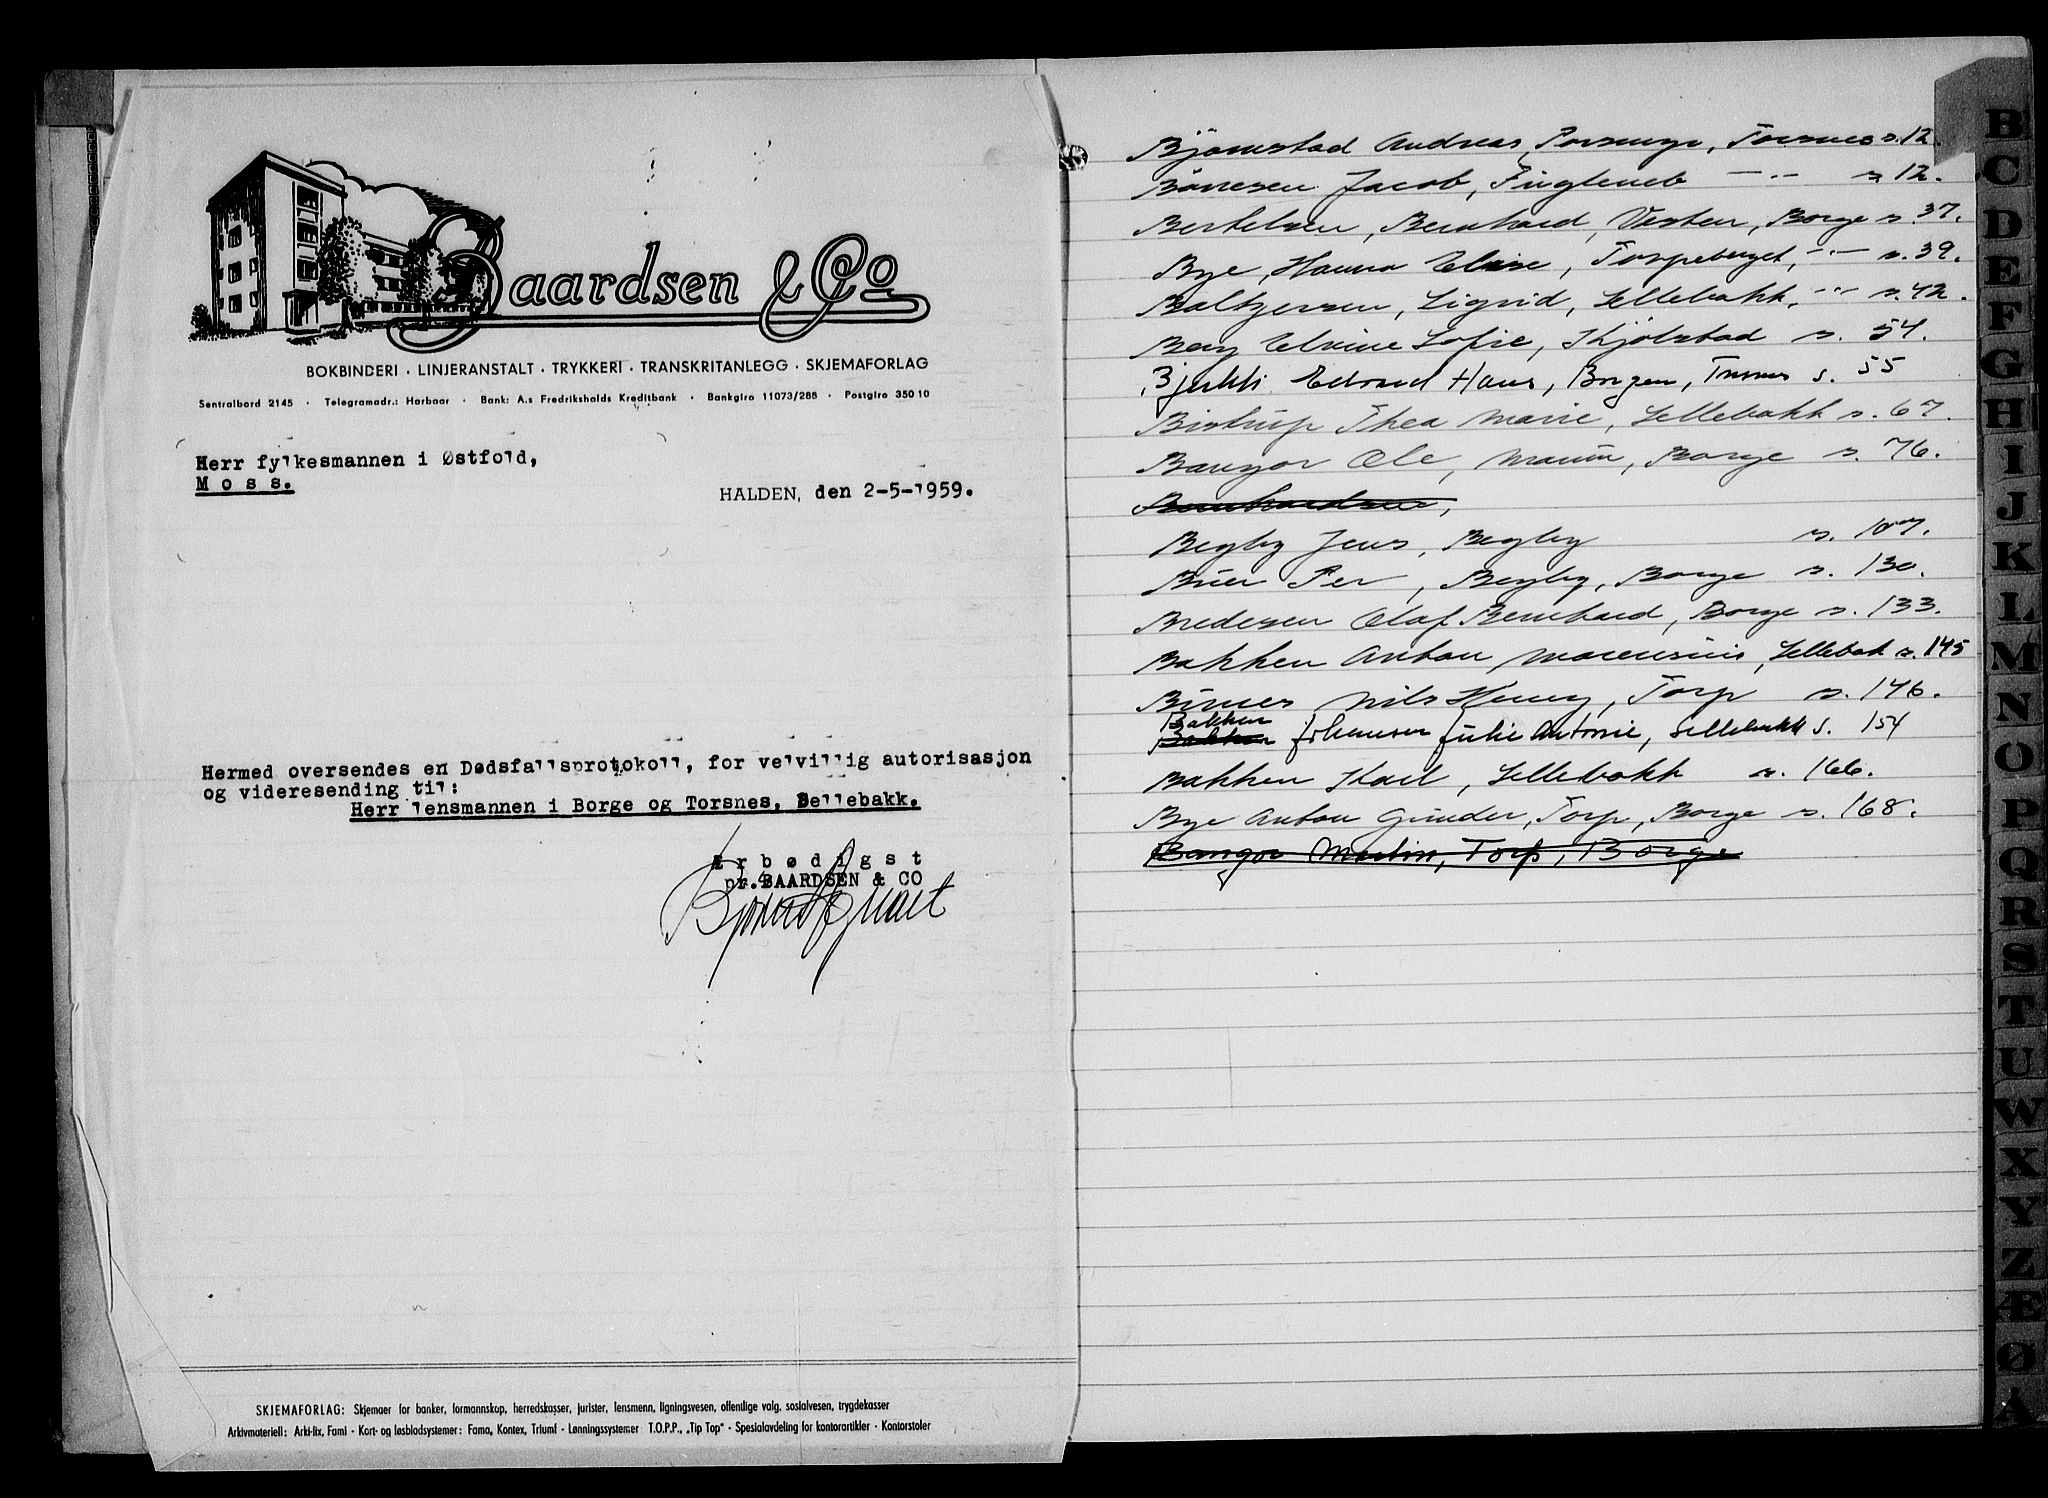 Baardsen & Co
BOKBINDERI · LINJERANSTALT · TRYKKERI · TRANSKRITANLEGG · SKJEMAFORLAG
Sentralbord 2145 · Telegramadr.: Harbaar · Bank: A.s Fredrikshalds Kreditbank · Bankgiro 11073/288 · Postgiro 350 10
Herr fylkesmannen i Østfold,
Moss.
HALDEN, den 2-5-1959.
Hermed oversendes en Dødsfallsprotokoll, for velvillig autorisasjon
og videresending til:
Herr lensmannen i Borge og Torsnes, Sellebakk.
Ærbødigst
pr. BAARDSEN & CO
SKJEMAFORLAG: Skjemaer for banker, formannskap, herredskasser, jurister, lensmenn, ligningsvesen, offentlige valg, sosialvesen, trygdekasser
Arkivmateriell: Arki-lix, Fami - Kort- og løsbladsystemer: Fama, Kontex, Triumf - Lønningssystemer T.O.P.P., „Tip Top" - Spesialavdeling for kontorartikler - Kontorstoler
Bjørnstad Andreas, Torsnes s. 12.
Jacob, Fuglevik -"- s 12.
Bertelsen, Bernhard, Borge s. 37.
Bye, Hanna Elise, Torpeberget, -"- s. 39.
Baltzersen, Sigrid, Sellebakk, -"- s. 42.
Berg Elvine Sofie, Kjølstad s. 54.
Edvard Hans, Borgen, Torsnes s. 55
Bistrup Thea Marie, Sellebakk s. 67.
Bangor Ole, Borge s. 76.
Bernhardsen,
Begby Jens, Begby s. 107.
Buer Per, Begby, Borge s. 130.
Bredesen Olaf Bernhard, Borge s. 133.
Bakken Anton Marensius, Sellebak s. 145
Nils Henry, Torp s. 146.
Bakken
Bakken Johansen Julie Antonie, Sellebakk s. 154
Bakken Karl, Sellebakk s. 166.
Bye Anton Gunder, Torp, Borge s. 168.
Bangor Martin, Torp, Borge
B
C
D
E
F
G
H
I
J
K
L
M
N
O
P
Q
R
S
T
U
W
X
Y
Z
Æ
Ø
A